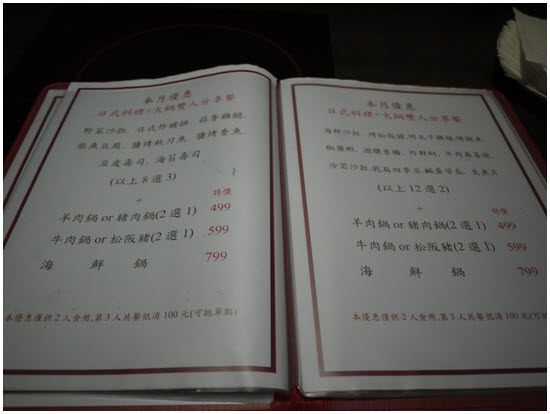 本月優惠
日式料理+火鍋雙人分享餐
野菜沙拉、日式炸豬排、蒜香雞腿、
柴魚豆腐、鹽烤秋刀魚、鹽烤香魚、
豆皮壽司、海苔壽司
(以上8選3)
+
特價
羊肉鍋or豬肉鍋(2選1) 499
牛肉鍋or松阪豬(2選1) 599
海鮮鍋 799
本優惠僅供2人食用,第3人共餐低消100元(可抵單點)
本月優惠
日式料理+火鍋雙人分享餐
海鮮沙拉、烤松阪豬、明太子雞翅、烤鯖魚、
椒鹽蝦、酒釀香腸、炸鮮蚵、牛肉壽喜燒、
冷筍沙拉、乾扁四季豆、鹹蛋苦瓜、生魚片
(以上12選2)
+
特價
羊肉鍋or豬肉鍋(2選1) 499
牛肉鍋or松阪豬(2選1) 599
海鮮鍋 799
本優惠僅供2人食用,第3人共餐低消100元(可抵